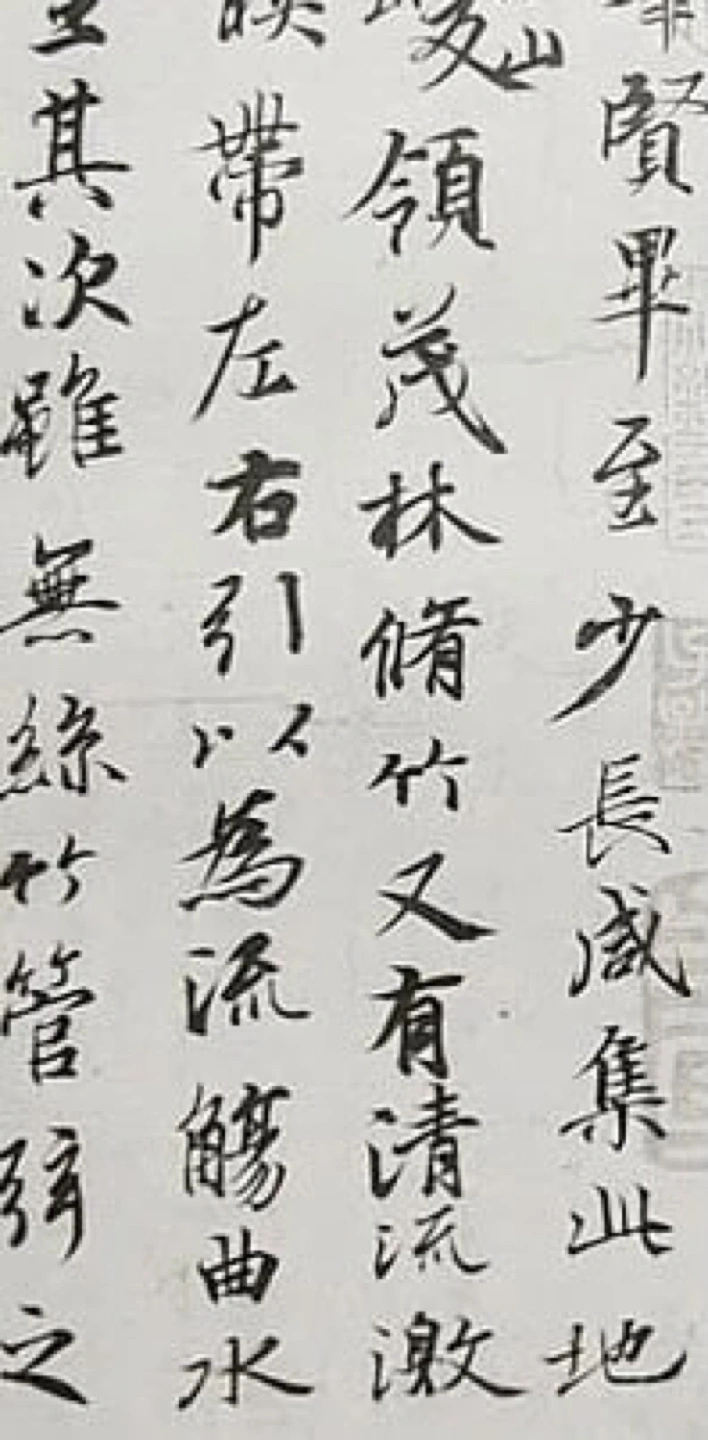 賢畢至少長咸集此地
山峻領茂林脩竹又有清流激
映帶左右引以為流觴曲水
其次雖無絲竹管弦之